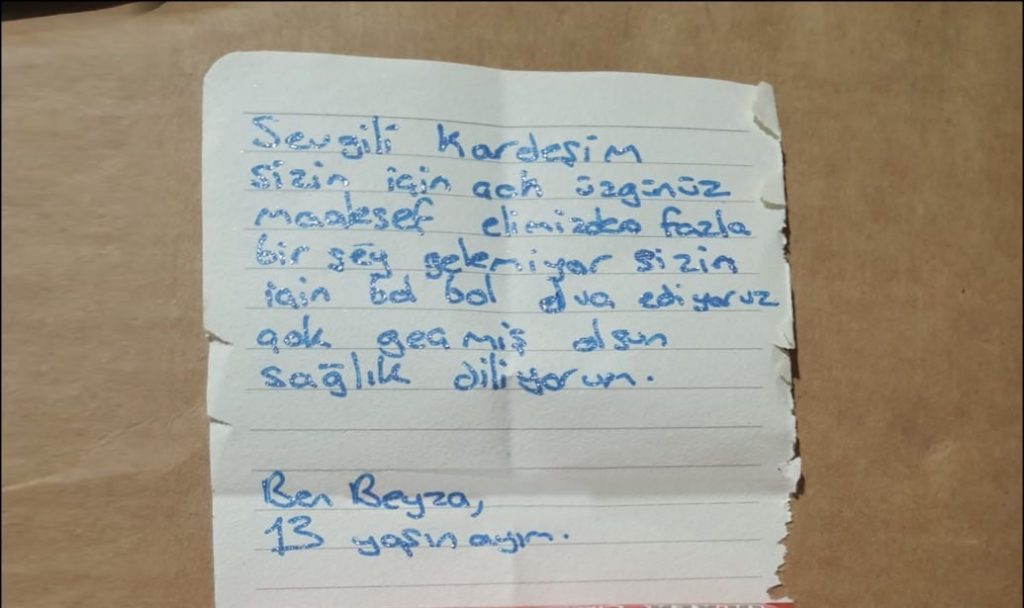 Sevgili Kardeşim
sizin için çok üzgünüz
maalesef elimizden fazla
bir şey gelemiyor sizin
için bol bol dua ediyoruz
çok geçmiş olsun
sağlık diliyorum.
Ben Beyza,
13 yaşınayım.